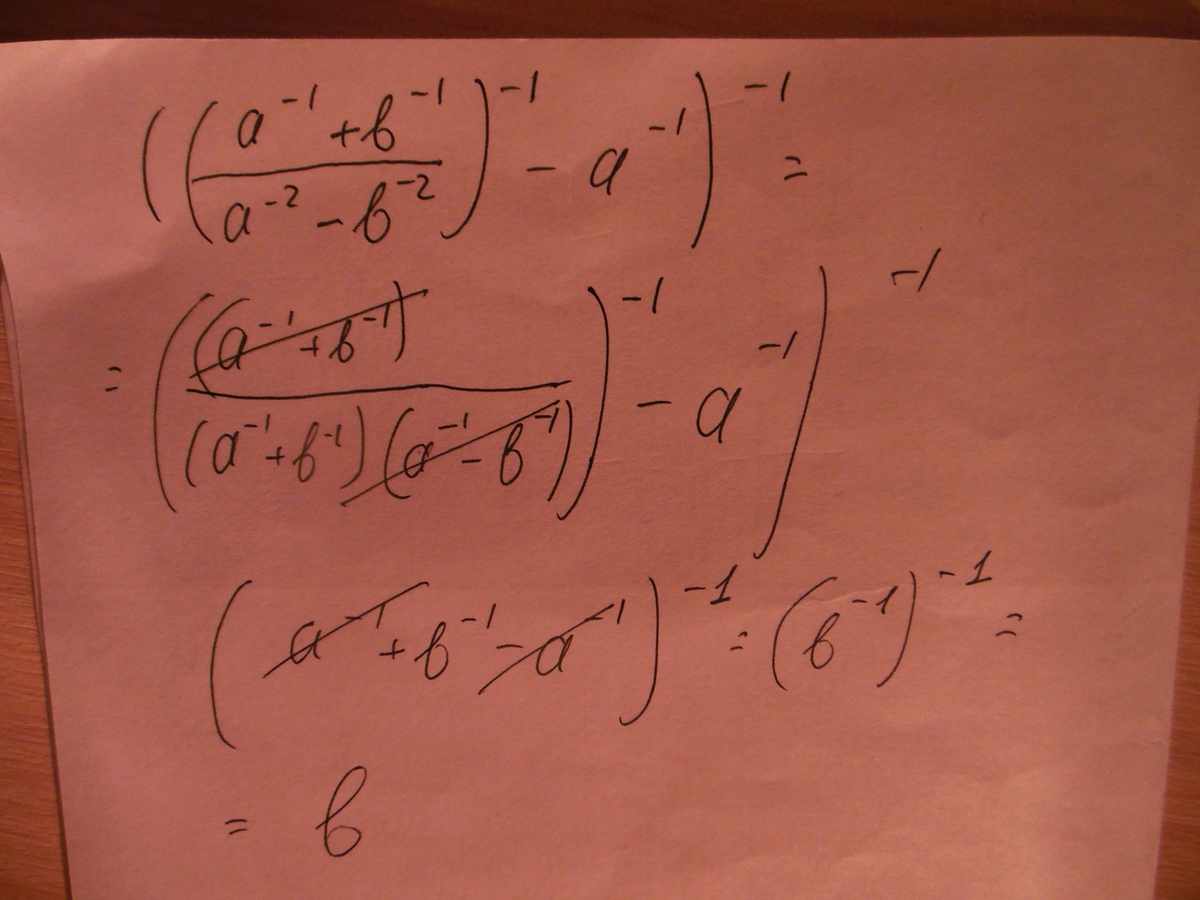 ((\frac{a^{-1}+b^{-1}}{a^{-2}-b^{-2}})^{-1}-a^{-1})^{-1}=
=((\frac{(a^{-1}+b^{-1})}{(a^{-1}+b^{-1})(a^{-1}-b^{-1})})^{-1}-a^{-1})^{-1}
(a^{-1}+b^{-1}-a^{-1})^{-1}=(b^{-1})^{-1}=
=b